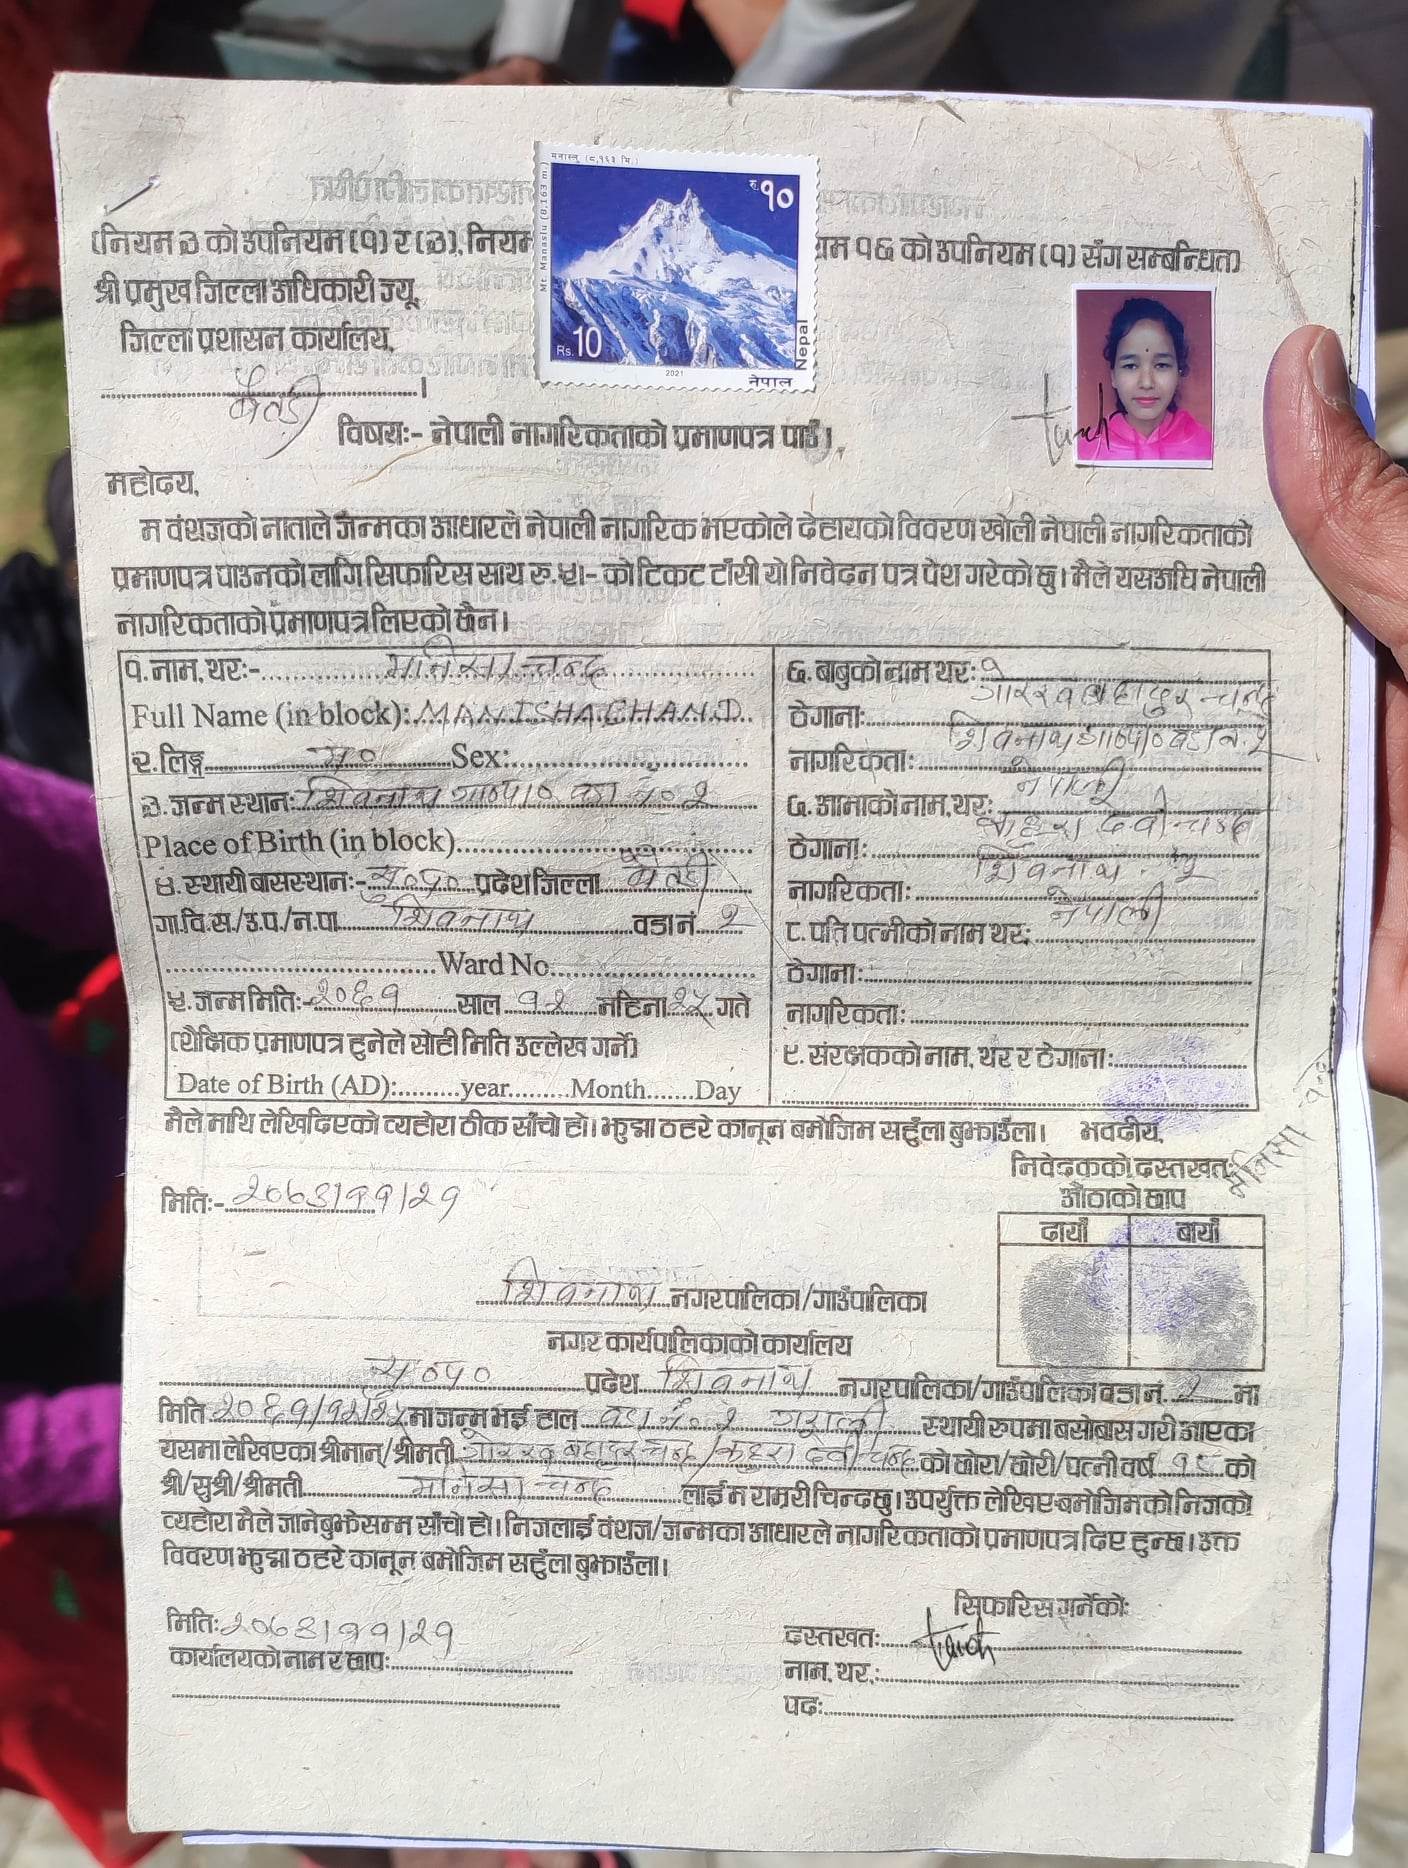 मनास्लु (८,१६३ मि.)
Mt. Manaslu (8,163 m.)
रु.१०
Rs. 10
2021
नेपाल Nepal
(नियम ३ को उपनियम (१) र (३), नियम
यम १६ को उपनियम (१) सँग सम्बन्धित)
श्री प्रमुख जिल्ला अधिकारी ज्यू,
जिल्ला प्रशासन कार्यालय,
बैतडी ।
विषयः- नेपाली नागरिकताको प्रमाणपत्र पाउँ।
महोदय,
म वंशजको नाताले जन्मका आधारले नेपाली नागरिक भएकोले देहायको विवरण खोली नेपाली नागरिकताको
प्रमाणपत्र पाउनको लागि सिफारिस साथ रु.५।- को टिकट टाँसी यो निवेदन पत्र पेश गरेको छु। मैले यसअघि नेपाली
नागरिकताको प्रमाणपत्र लिएको छैन।
१. नाम, थरः- मनिसा चन्द
Full Name (in block): MANISHA CHAND
२. लिङ्ग म० Sex:
३. जन्म स्थानः शिवनाथ गा०पा० वडा नं० २
Place of Birth (in block)
४. स्थायी बासस्थानः- सु०प० प्रदेश जिल्ला बैतडी
गा.वि.स./उ.प./न.पा. शिवनाथ वडा नं. २
Ward No.
५. जन्म मितिः- २०६१ साल १२ महिना २५ गते
(शैक्षिक प्रमाणपत्र हुनेले सोही मिति उल्लेख गर्ने)
Date of Birth (AD): year Month Day
६. बाबुको नाम थरः गोरख बहादुर चन्द
ठेगानाः शिवनाथ गा०पा० वडा नं. २
नागरिकताः नेपाली
७. आमाको नाम, थरः देवी चन्द
ठेगानाः शिवनाथ २
नागरिकताः नेपाली
८. पति पत्नीको नाम थरः
ठेगानाः
नागरिकताः
९. संरक्षकको नाम, थर र ठेगानाः
मैले माथि लेखिदिएको व्यहोरा ठीक साँचो हो। झुठ्ठा ठहरे कानून बमोजिम सहुँला बुझाउँला। भवदीय,
निवेदकको दस्तखतः मनिसा चन्द
मितिः- २०७९।११।२१
औंठाको छाप
दायाँ बायाँ
शिवनाथ नगरपालिका/गाउँपालिका
नगर कार्यपालिकाको कार्यालय
सु०प० प्रदेश शिवनाथ नगरपालिका/गाउँपालिका वडा नं. २ मा
मिति २०६१/१२/२५ मा जन्म भई हाल वडा नं. २ स्थायी रुपमा बसोबास गरी आएका
यसमा लेखिएका श्रीमान्/श्रीमती गोरख बहादुर चन्द / देवी चन्द को छोरा/छोरी/पत्नी वर्ष १८ को
श्री/सुश्री/श्रीमती मनिसा चन्द लाई म राम्ररी चिन्दछु। उपर्युक्त लेखिए बमोजिमको निजको
व्यहोरा मैले जाने बुझेसम्म साँचो हो। निजलाई वंशज/जन्मका आधारले नागरिकताको प्रमाणपत्र दिए हुन्छ। उक्त
विवरण झुठ्ठा ठहरे कानून बमोजिम सहुँला बुझाउँला।
सिफारिस गर्नेकोः
मितिः २०७९।११।२१
दस्तखतः
कार्यालयको नाम र छापः
नाम, थर,:
पदः